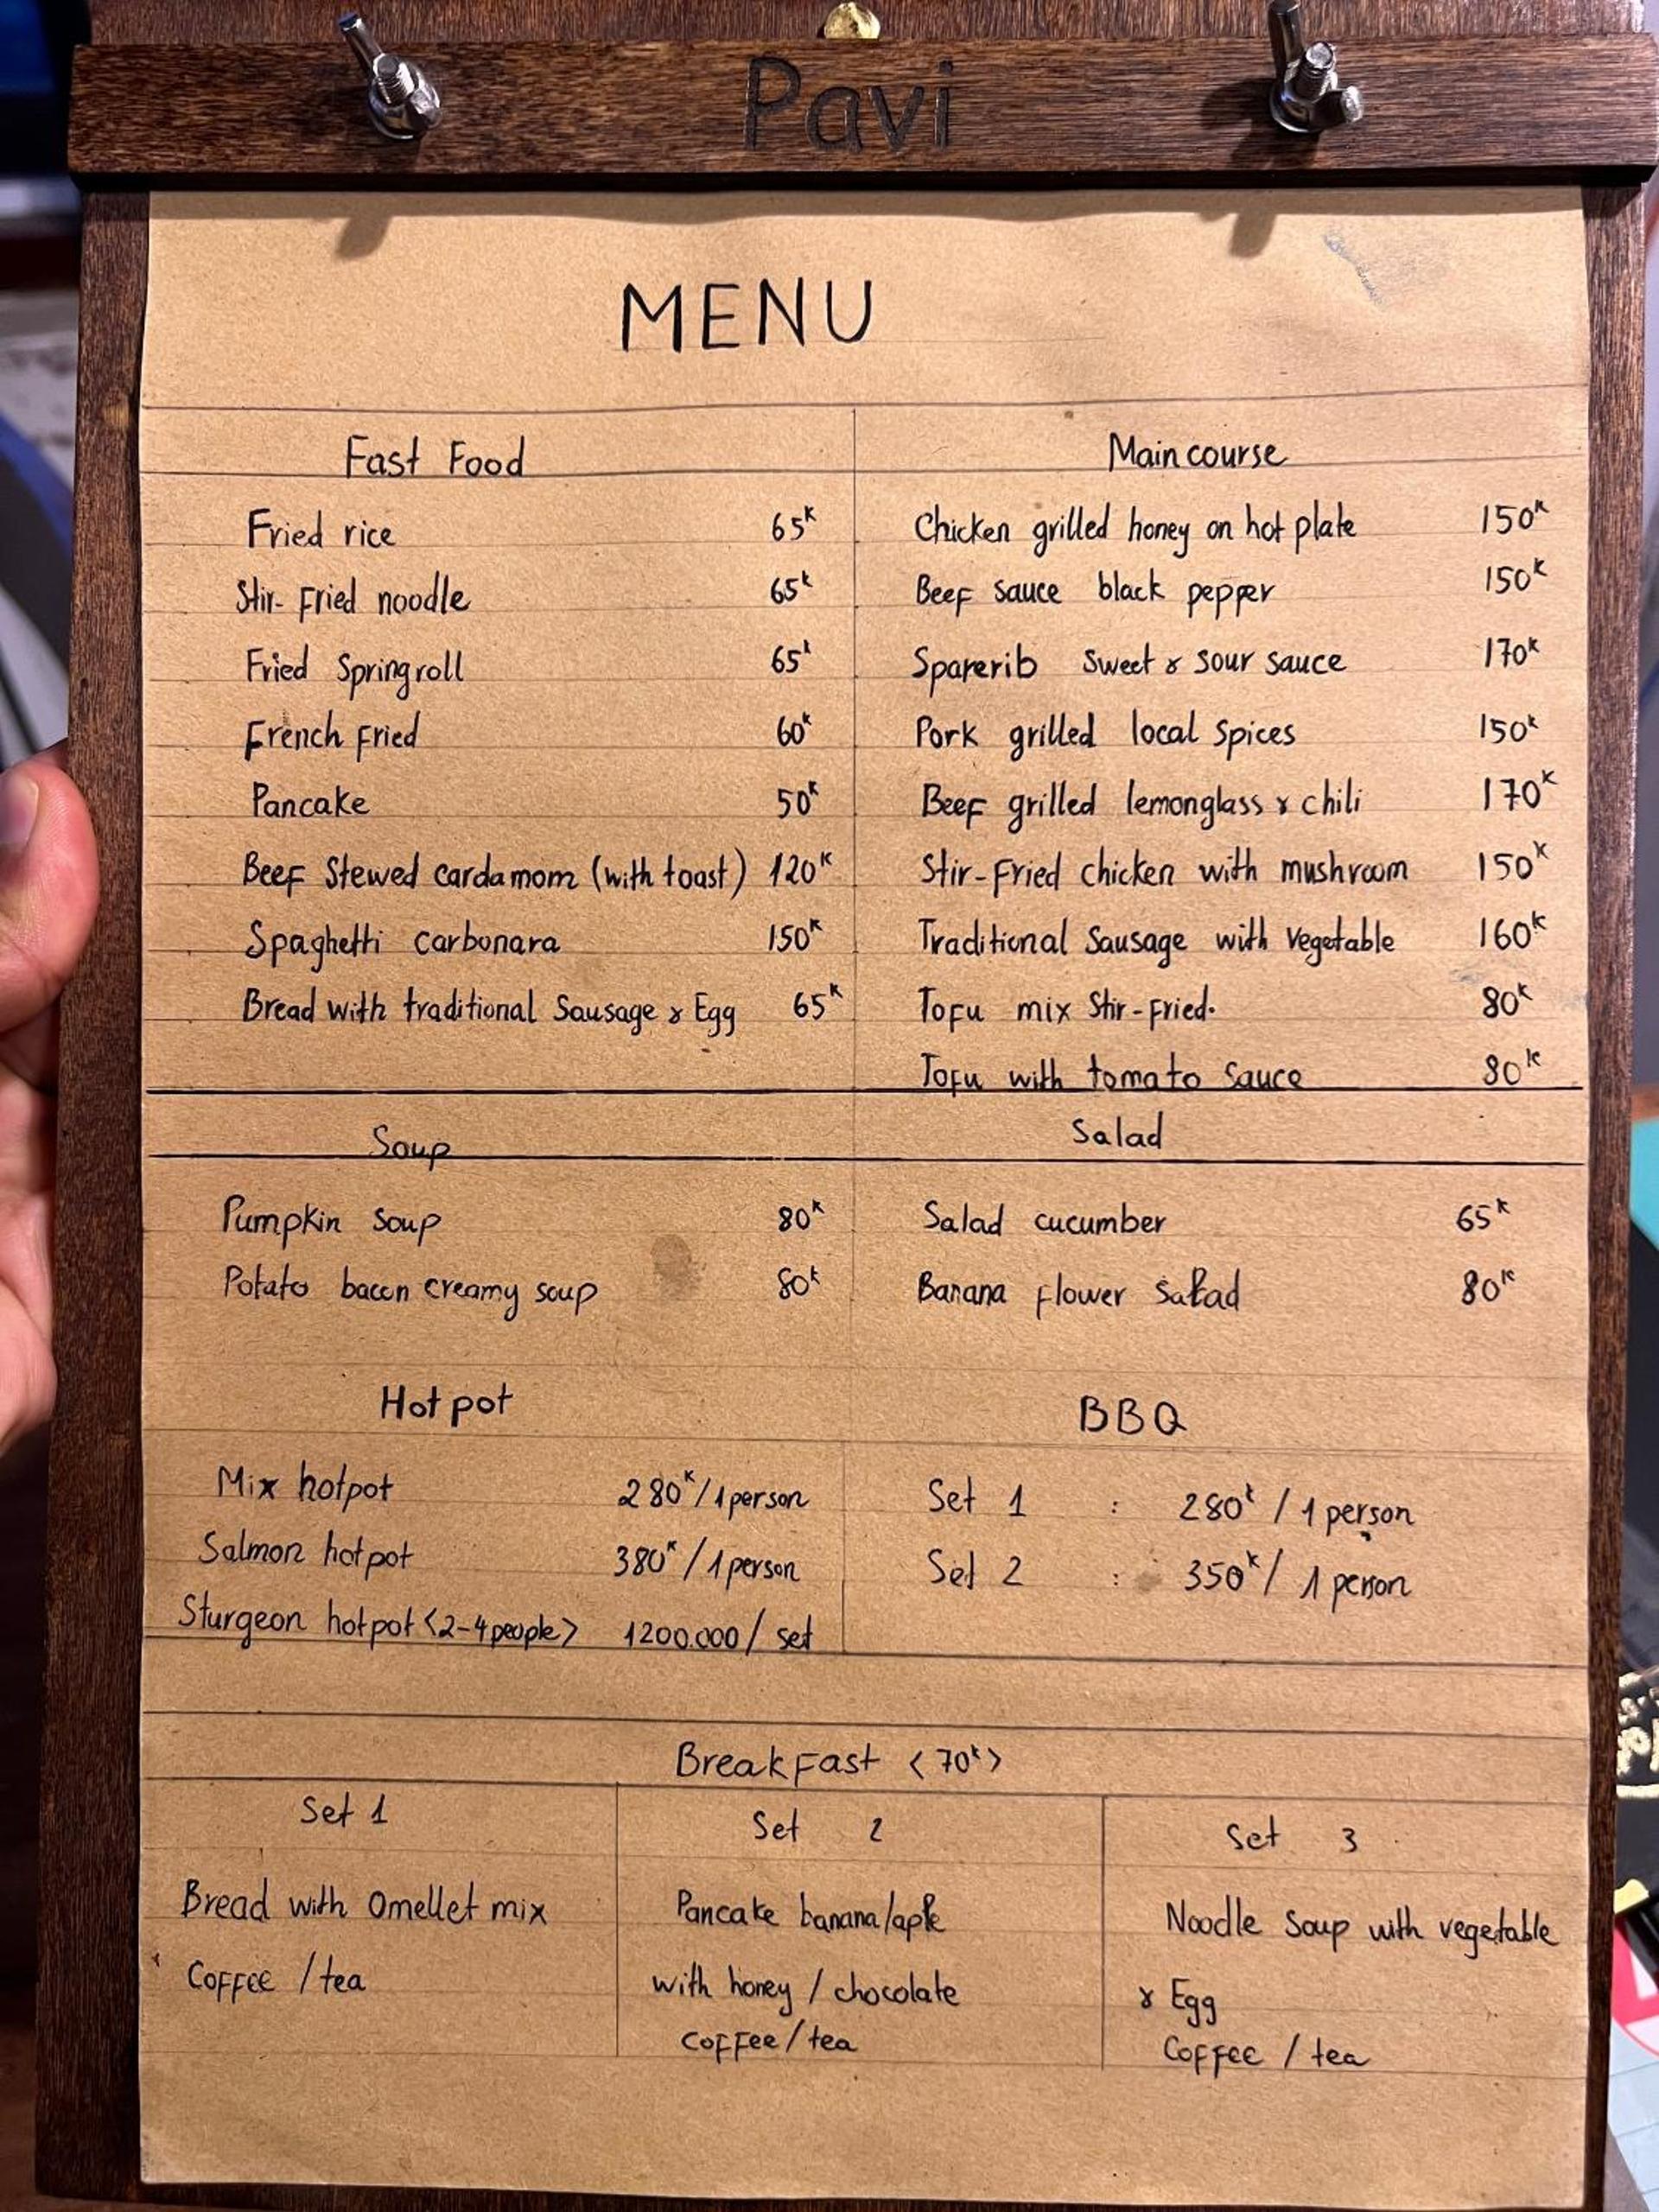 Pavi
MENU
Fast Food
Fried rice 65k
Stir-Fried noodle 65k
Fried Springroll 65k
French Fried 60k
Pancake 50k
Beef Stewed cardamom (with toast) 120k
Spaghetti carbonara 150k
Bread with traditional Sausage & Egg 65k
Main course
Chicken grilled honey on hot plate 150k
Beef sauce black pepper 150k
Sparerib sweet & sour sauce 170k
Pork grilled local spices 150k
Beef grilled lemonglass & chili 170k
Stir-Fried chicken with mushroom 150k
Traditional Sausage with Vegetable 160k
Tofu mix Stir-Fried. 80k
Tofu with tomato sauce 80k
Soup
Pumpkin soup 80k
Potato bacon creamy soup 80k
Salad
Salad cucumber 65k
Banana flower salad 80k
Hot pot
Mix hotpot 280k/1person
Salmon hotpot 380k/1person
Sturgeon hotpot <2-4people> 1200.000/ set
BBQ
Set 1 : 280k / 1 person
Set 2 : 350k / 1 person
Breakfast <70k>
Set 1
Bread with Omellet mix
Coffee / tea
Set 2
Pancake banana/aple
with honey / chocolate
Coffee / tea
Set 3
Noodle Soup with vegetable
& Egg
Coffee / tea